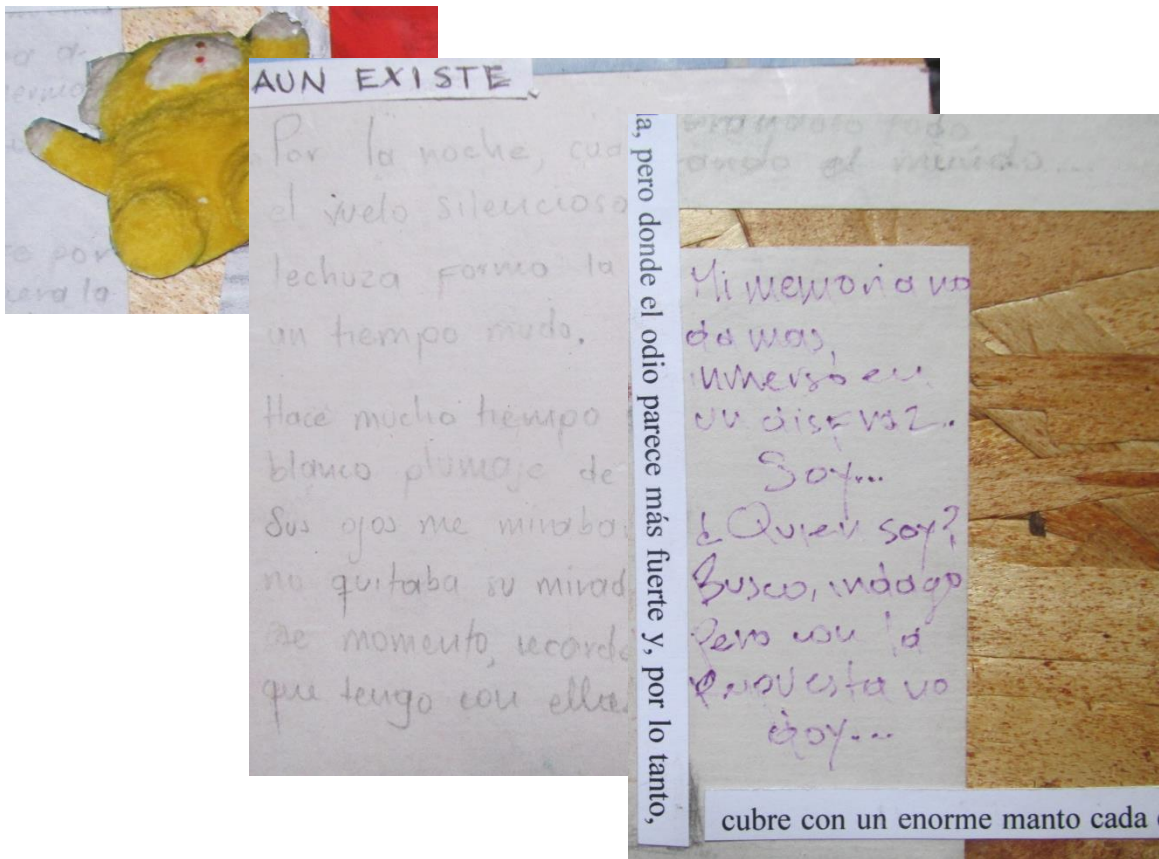 AUN EXISTE
Por la noche, cua
el vuelo silencioso
lechuza formo la
un tiempo mudo.
Hace mucho tiempo
blanco plumaje de
Sus ojos me miraba
no quitaba su mirad
ese momento, recorde
que tengo con ella.
la, pero donde el odio parece más fuerte y, por lo tanto,
todo
ando el mundo...
Mi memoria no
da mas,
inmerso en
un disfraz..
Soy...
¿Quien soy?
Busco, indago
Pero con la
respuesta no
doy...
cubre con un enorme manto cada